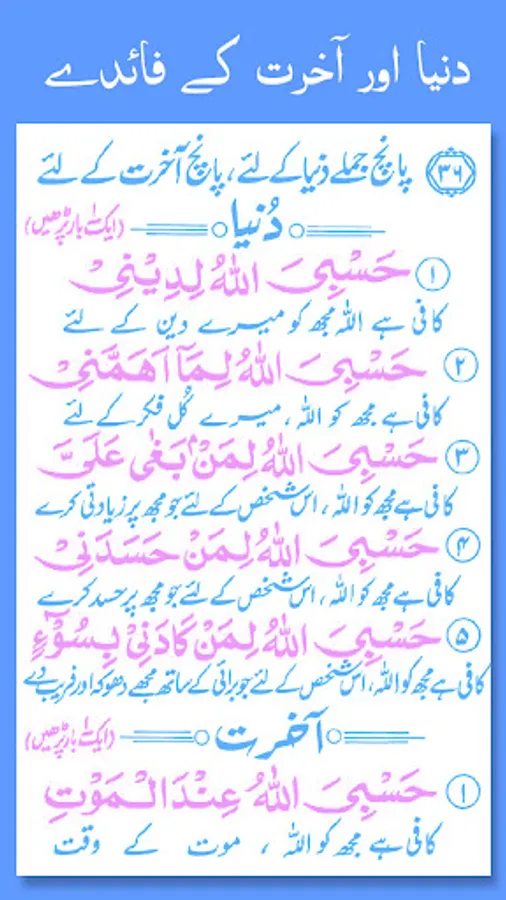 دنیا اور آخرت کے فائدے
۳۶ پانچ جملے دُنیا کے لئے، پانچ آخرت کے لئے
دُنیا (ایک بار پڑھیں)
۱ حَسْبِیَ اللّٰہُ لِدِیْنِیْ
کافی ہے اللّٰہ مجھ کو میرے دین کے لئے
۲ حَسْبِیَ اللّٰہُ لِمَآ اَھَمَّنِیْ
کافی ہے مجھ کو اللّٰہ، میرے کُل فکر کے لئے
۳ حَسْبِیَ اللّٰہُ لِمَنْۢ بَغٰی عَلَیَّ
کافی ہے مجھ کو اللّٰہ، اس شخص کے لئے جو مجھ پر زیادتی کرے
۴ حَسْبِیَ اللّٰہُ لِمَنْ حَسَدَنِیْ
کافی ہے مجھ کو اللّٰہ، اس شخص کے لئے جو مجھ پر حسد کرے
۵ حَسْبِیَ اللّٰہُ لِمَنْ کَادَنِیْ بِسُوْٓءٍ
کافی ہے مجھ کو اللّٰہ، اس شخص کے لئے جو برائی کے ساتھ مجھے دھوکہ اور فریب دے
آخرت (ایک بار پڑھیں)
۱ حَسْبِیَ اللّٰہُ عِنْدَ الْمَوْتِ
کافی ہے مجھ کو اللّٰہ، موت کے وقت